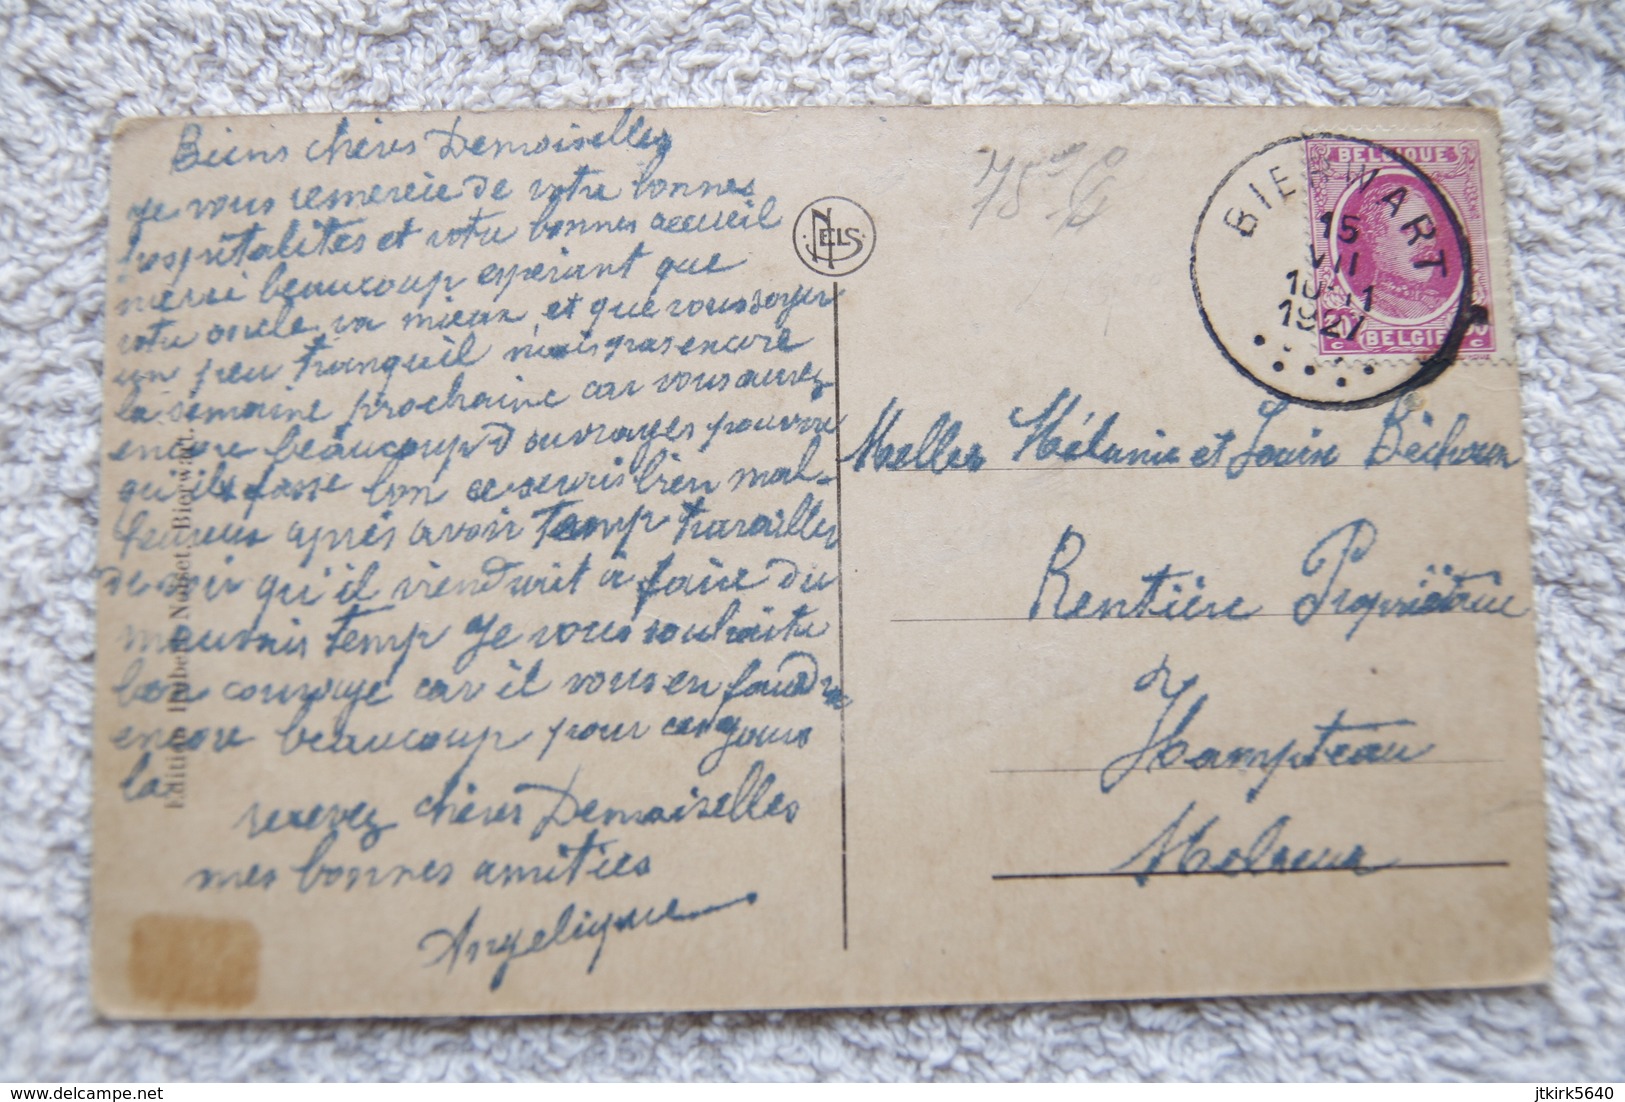 Biens chères Demoiselles
Je vous remercie de votre bonnes
hospitalités et votre bonnes accueil
merci beaucoup espérant que
votre oncle va mieux et que vous soyer
un peu tranquil mais pas encore
la semaine prochaine car vous aurez
encore beaucoup d'ouvrages pourvu
qu'ils fasse bon ce serais bien mal-
heureux après avoir temp travailler
de voir qu'il viendrait à faire du
mauvais temp Je vous souhaite
bon courage car il vous en faudra
encore beaucoup pour ces jours
la
recevez chères Demoiselles
mes bonnes amitiés
Angelique
Edition Hubert Noiset, Bierwart.
NELS
BIERWART
15
VII
10-11
1927
BELGIQUE
BELGIE
C
C
Melles Mélanie et Louise
Rentière Propriétaire
Hampteau
Melreux
delcampe.net
jtkirk5640